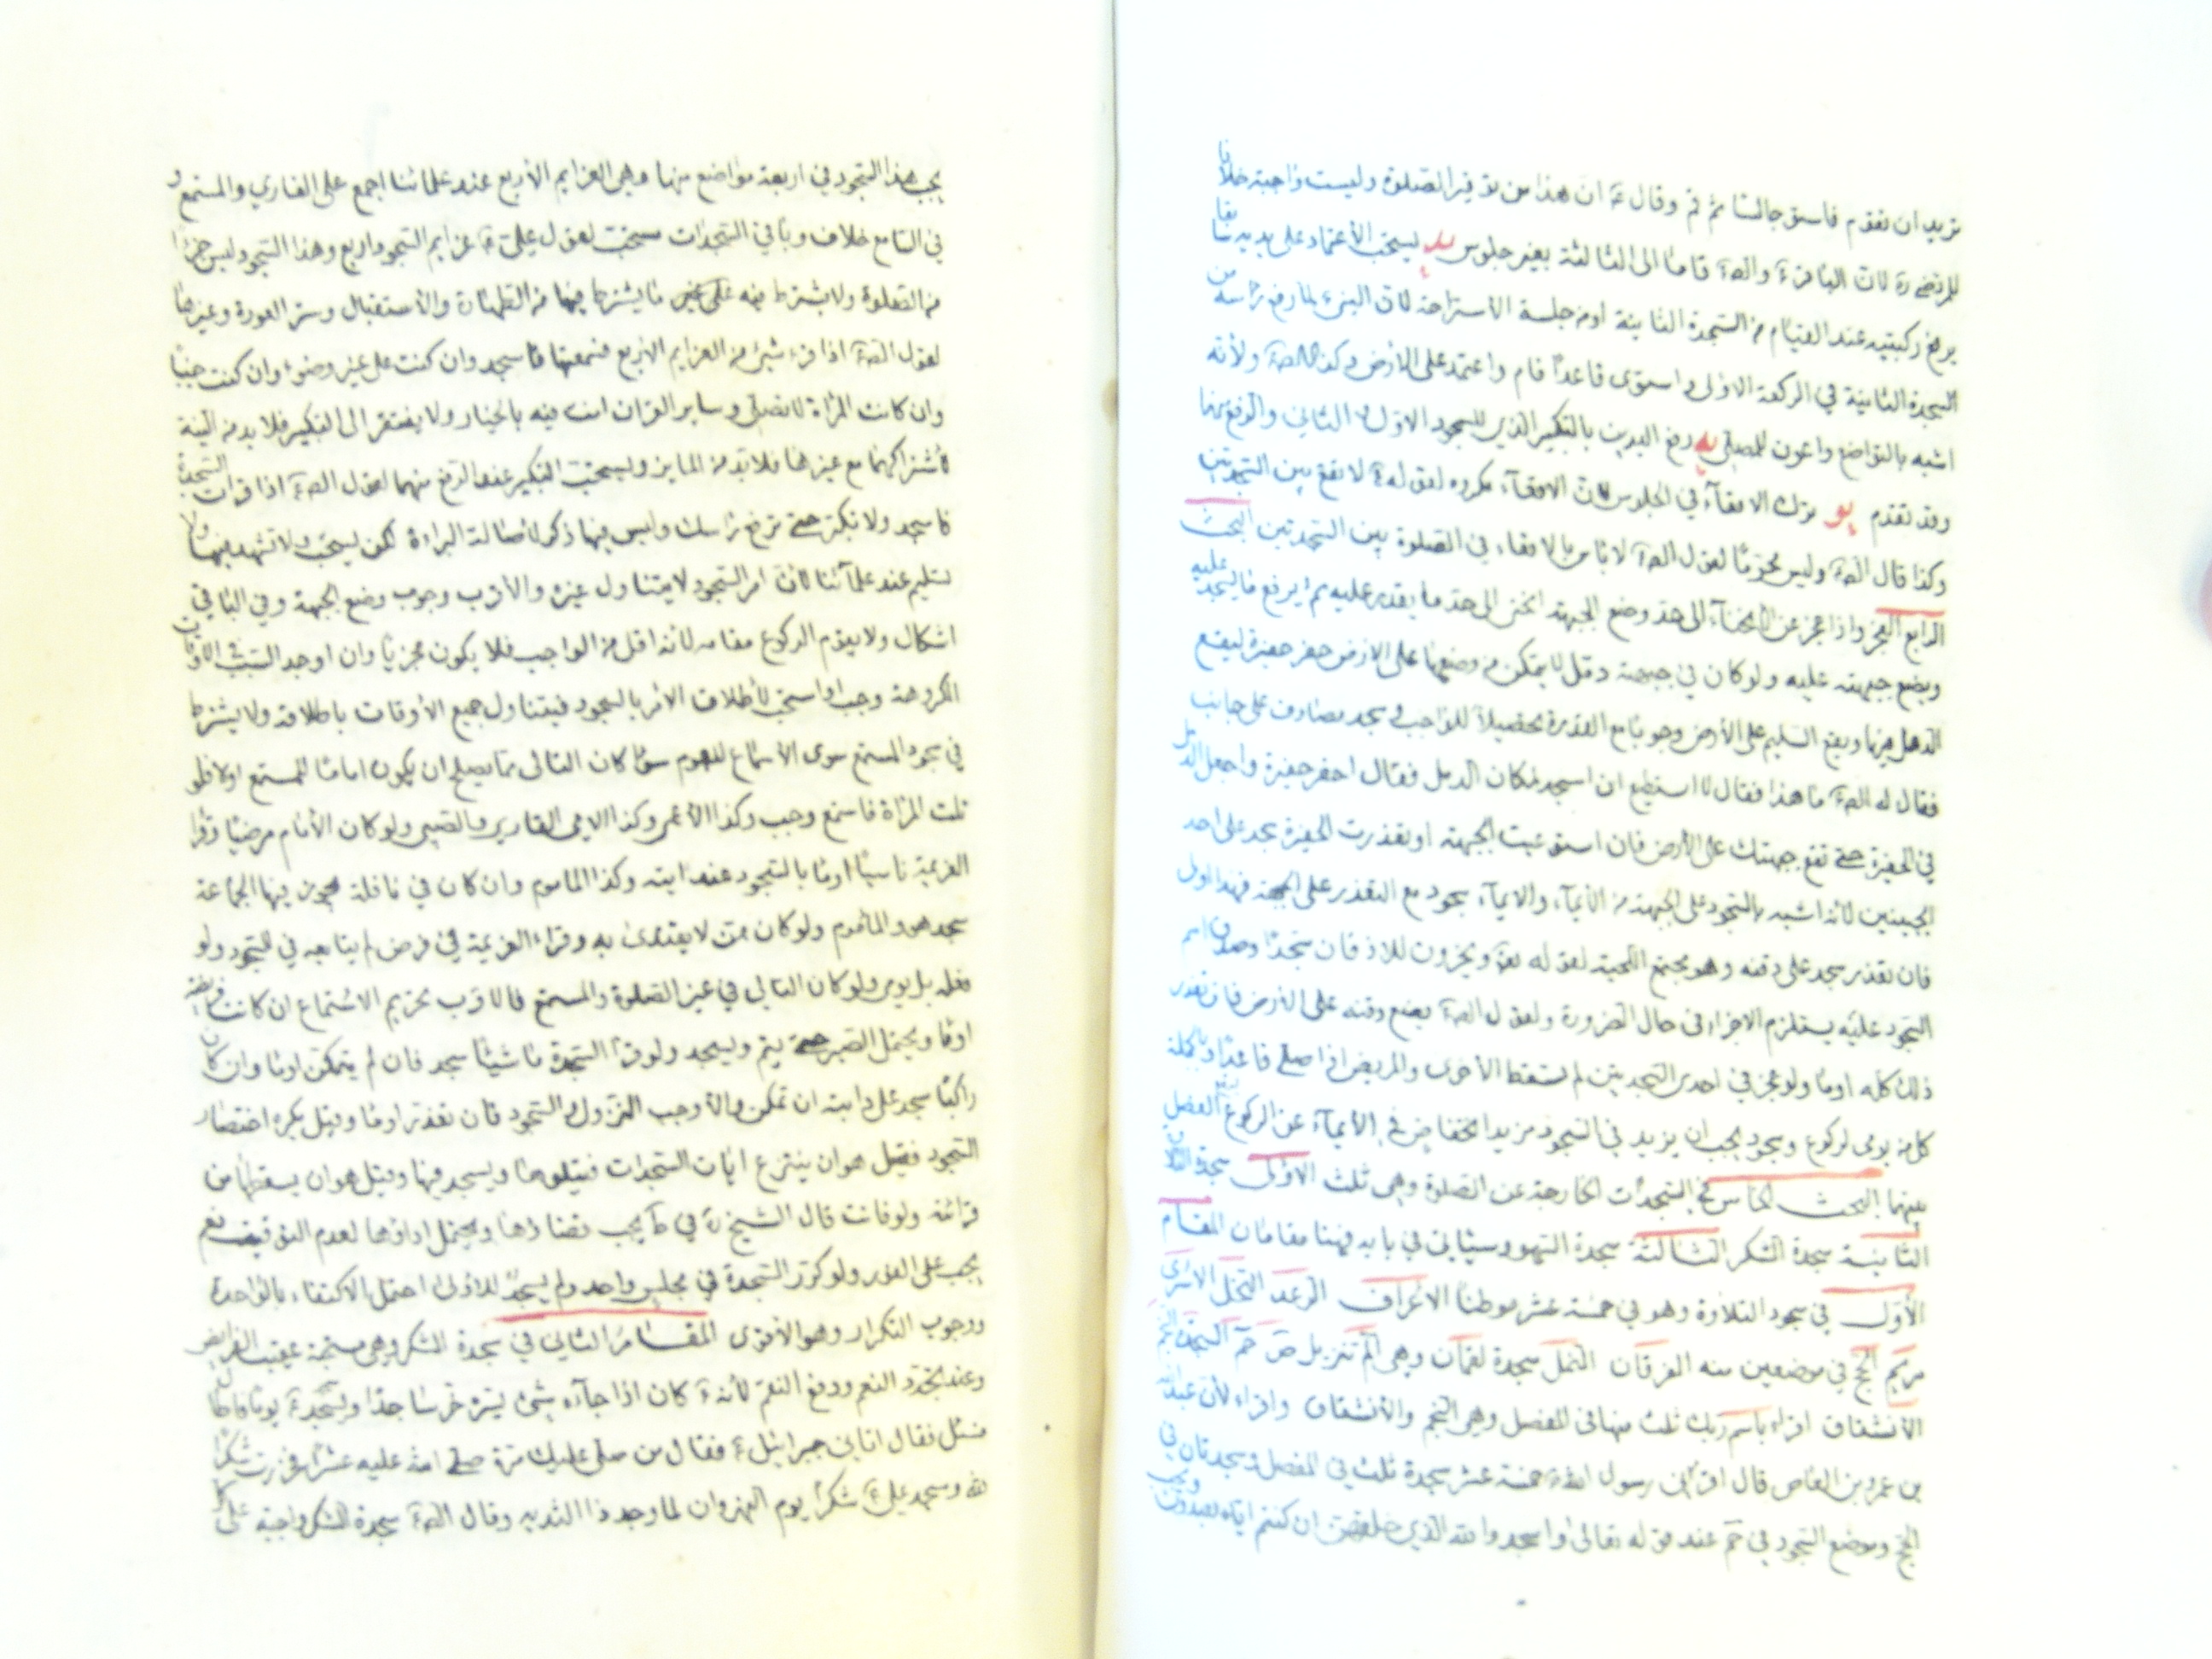 تريد ان تقوم فاستو جالسا ثم قم وقال ع ان هذا من توقير الصلوة وليست واجبة خلافا
للمرتضى ره لان الباقر ع والص ع قاما الى الثالثة بغير جلوس يد يستحب الأعتماد على يديه سابقا
برفع ركبتيه عند القيام من السجدة الثانية او من جلسة الأستراحة لان النبي ع لما رفع راسه من
السجدة الثانية في الركعة الاولى واستوى قاعدا قام واعتمد على الارض وكذا الص ع ولأنه
اشبه بالتواضع واعون للمصلي يه رفع اليدين بالتكبير الذي للسجود الاول و الثاني والرفع منهما
وقد تقدم يو ترك الاقعآء في الجلوس لان الاقعآء مكروه لقوله ع لا تقع بين السجدتين
وكذا قال الص ع وليس محرما لقول الص ع لا باس بالاقعاء في الصلوة بين السجدتين البحث
الرابع العجز واذا عجز عن الانحنآء الى حد وضع الجبهة انحنى الى حد ما يقدر عليه ثم يرفع ما يسجد عليه
ويضع جبهته عليه ولو كان في جبهته دمل لا يتمكن من وضعها على الارض حفر حفيرة ليقع
الدمل فيها ويقع السليم على الأرض وجوبا مع القدرة تحصيلا للواجب و سجد مصادف على جانب
فقال له الص ع ما هذا فقال لا استطيع ان اسجد لمكان الدمل فقال احفر حفيرة واجعل الدمل
في الحفيرة حتى تقع جبهتك على الأرض فان استوعبت الجبهة او تعذرت الحفيرة سجد على احد
الجبينين لأنه اشبه بالسجود على الجبهة من الأيمآء والايمآء سجود مع التعذر على الجبهة فهذا اولى
فان تعذر سجد على ذقنه وهو مجتمع اللحية لقوله تعو ويخرون للاذقان سجدا وصدق اسم
السجود عليه يستلزم الاجزاء في حال الضرورة ولقول الص ع يضع ذقنه على الأرض فان تعذر
ذلك كله اوما ولو عجز في احدى السجدتين لم تسقط الأخرى والمريض اذا صلى قاعدا وبالجملة
كل من يومى لركوع وسجود يجب ان يزيد في السجود مزيد انخفاض في الأيمآء عن الركوع ليقع الفصل
بينهما البحث الخامس في السجدات الخارجة عن الصلوة وهي ثلث الاولى سجدة القران
الثانية سجدة الشكر الثالثة سجدة السهو وسيأتي في بابه فهنا مقامان المقام
الأول في سجود التلاوة وهو في خمسة عشر موطنا الاعراف الرعد النحل الاسرى
مريم الحج في موضعين منه الفرقان النمل سجدة لقمان وهي الم تنزيل ص حم السجدة النجم
الأنشقاق اقراء باسم ربك ثلث منها في المفصل وهي النجم والأنشقاق واقراء لأن عبدالله
بن عمرو بن العاص قال اقراني رسول الله ع خمسة عشر سجدة ثلث في المفصل و سجدتان في
الحج وموضع السجود في حم عند قوله تعالى واسجدوا لله الذي خلقهن ان كنتم اياه تعبدون ويجب
يجب هذا السجود في اربعة مواضع منها وهي العزايم الأربع عند علمائنا اجمع على القاري والمستمع و
في السامع خلاف وباقي السجدات مستحب لقول علي ع عزايم السجود اربع وهذا السجود ليس جزءا
من الصلوة ولا يشترط فيه على غير ما يشترط فيها من الطهارة والأستقبال وستر العورة وغيرها
لقول الص ع اذا قرء شيئ من العزايم الاربع فسمعتها فاسجد وان كنت على غير وضوء وان كنت جنبا
وان كانت المرأة لا تصلي وساير القران انت فيه بالخيار ولا يفتقر الى التكبير فلا بد من النية
لأشتراكهما مع غيرها فلا بد من المايز ويستحب التكبير عند الرفع منهما لقول الص ع اذا قرات السجدة
فاسجد ولا تكبر حتى ترفع راسك وليس فيها ذكر لأصالة البراءة لكن يستحب ولا تشهد فيها ولا
تسليم عند علمآئنا لان امر السجود لا يتناول غيره والأقرب وجوب وضع الجبهة وفي الباقي
اشكال ولا يقوم الركوع مقامه لأنه اقل من الواجب فلا يكون مجزيا وان اوجد السبب في الاوقات
المكروهة وجب او استحب لأطلاق الامر بالسجود فيتناول جميع الأوقات باطلاقه ولا يشترط
في سجود المستمع سوى الأستماع للعموم سواء كان التالى ممن يصلح ان يكون اماما للمستمع او لا فلو
تلت المراة فاستمع وجب وكذا الأعمى وكذا الامى القاري والصبى ولو كان الأمام مرضيا وقرا
العزيمة ناسيا اوما بالسجود عند ايته وكذا الماموم وان كان في نافلة يجوز فيها الجماعة
سجد هو والماموم ولو كان ممن لا يقتدى به وقراء العزيمة في فرض لم يتابعه في السجود ولو
فعله بل يومى ولو كان التالي في غير الصلوة والمستمع فالاقرب تحريم الاستماع ان كانت فريضة
اوما ويحتمل الصبر حتى يتم ويسجد ولو قرا السجدة ماشيا سجد فان لم يتمكن اوما وان كان
راكبا سجد على دابته ان تمكن والا وجب النزول و السجود فان تعذر اوما وقيل يكره اختصار
السجود فقيل هو ان ينتزع ايات السجدات فيتلوها ويسجد فيها وقيل هو ان يسقطها من
قرائته ولو فاتت قال الشيخ ره في ط يجب قضاؤها ويحتمل اداؤها لعدم التوقيف نعم
يجب على الفور ولو كرر السجدة في مجلس واحد ولم يسجد للاولى احتمل الاكتفاء بالواحدة
ووجوب التكرار وهو الأقوى المقام الثاني في سجدة الشكر وهي مستحبة عقيب الفرايض
وعند تجدد النعم ودفع النقم لأنه ع كان اذا جآءه شيئ يسره خر ساجدا وسجد ع يوما فاطال
فسئل فقال اتاني جبرائيل ع فقال من صلى عليك مرة صلى الله عليه عشرا فخررت شكرا
لله وسجد علي ع شكرا يوم النهروان لما وجد ذا الثديه وقال الص ع سجدة الشكر واجبة على كل